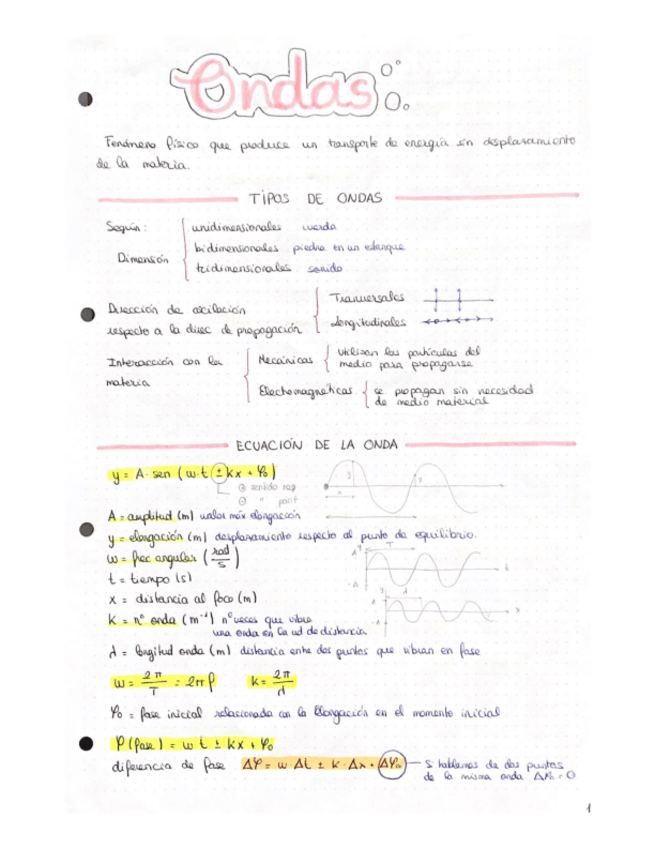 Ondas
Fenómeno físico que produce un transporte de energía sin desplazamiento
de la materia.
TIPOS DE ONDAS
Según:
Dimensión
unidimensionales cuerda
bidimensionales piedra en un estanque
tridimensionales sonido
Dirección de oscilación
respecto a la direc de propagación
Transversales
Longitudinales
Interacción con la
materia
Mecánicas
utilizan las partículas del
medio para propagarse
Electromagnéticas
se propagan sin necesidad
de medio material
ECUACIÓN DE LA ONDA
y = A · sen (ω·t ± kx + φ₀)
⊕ sentido neg
⊖ " posit
A = amplitud (m) valor máx elongación
y = elongación (m) desplazamiento respecto al punto de equilibrio.
ω = frec angular (rad/s)
t = tiempo (s)
x = distancia al foco (m)
k = nº onda (m⁻¹) nº veces que vibra
una onda en la ud de distancia
λ = longitud onda (m) distancia entre dos puntos que vibran en fase
ω = 2π/T = 2πf k = 2π/λ
φ₀ = fase inicial relacionada con la elongación en el momento inicial
φ (fase) = ωt ± kx + φ₀
diferencia de fase Δφ = ω·Δt ± k·Δx + Δφ₀
Si hablamos de dos puntos
de la misma onda Δφ₀ = 0
1